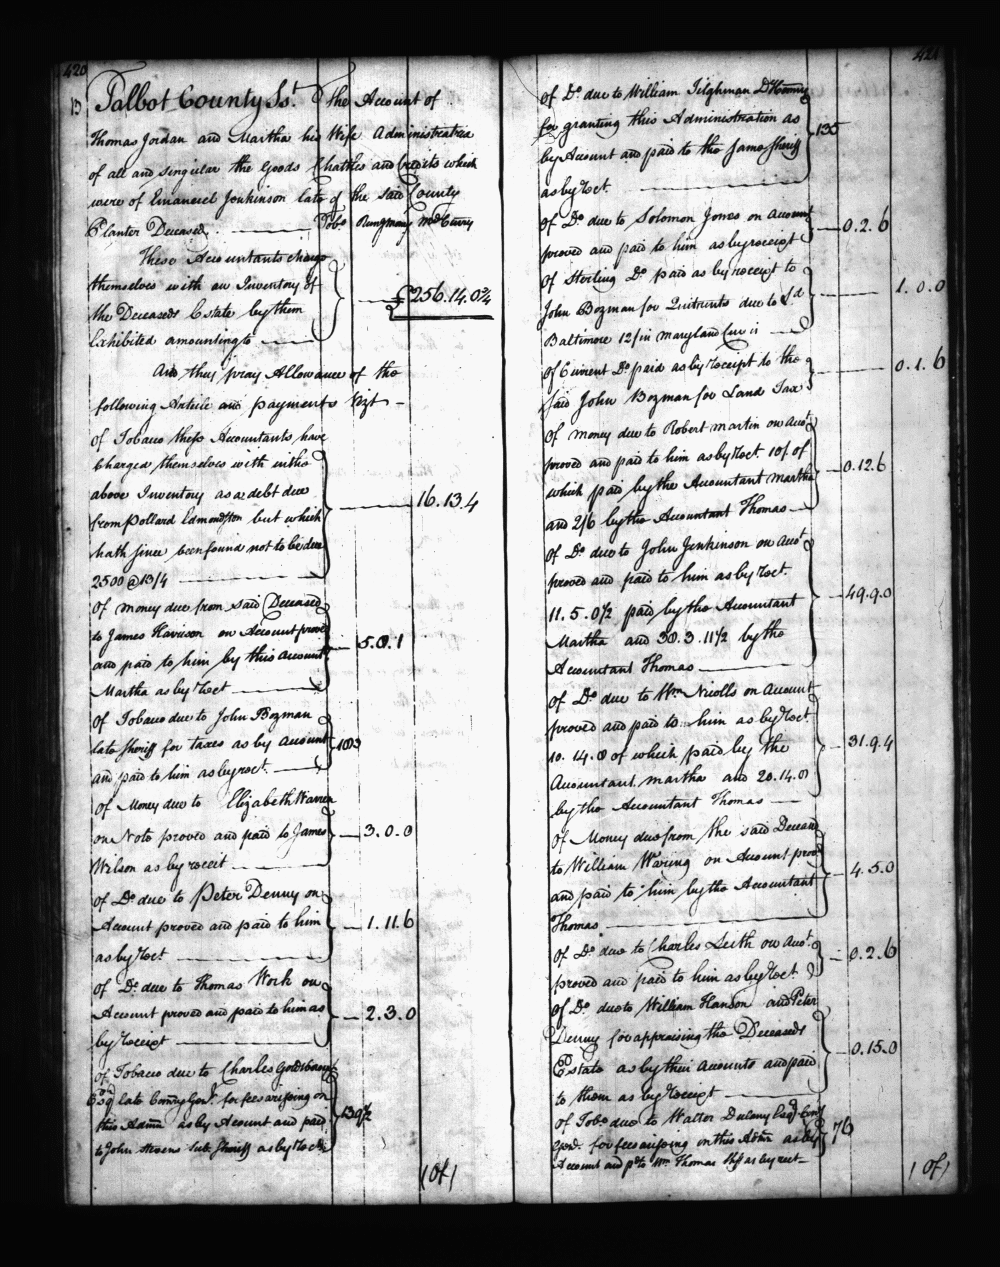 420
13 Talbot County Ss.t The Account of
Thomas Jordan and Martha his Wife Administratrix
of all and singular the Goods Chattles and Credits which
were of Emanuel Jenkinson late of the said County
Planter Deceased. Tobo. Curry
These Accountants charge
themselves with an Inventory of
the Deceaseds Estate by them
Exhibited amounting to £256.14.0¾
And they pray Allowance of the
following Article and payments Vizt
of Tobacco these Accountants have
charged themselves with in the
above Inventory as a debt due
from Pollard Edmondson but which
hath since been found not to be due
2500 @ 13/4 16.13.4
Of money due from said Deceased
to James Harrison on Account proved
and paid to him by this Account
Martha as by Rect 5.0.1
Of Tobacco due to John Bozman
late Sheriff for taxes as by Account
and paid to him as by rect.
of Money due to Elizabeth Warren
on Note proved and paid to James
Wilson as by receit 3.0.0
of Do. due to Peter Denny on
Account proved and paid to him
as by Rect 1.11.6
of Do. due to Thomas Work on
Account proved and paid to him as
by Receipt 2.3.0
of Tobacco due to Charles Goldsborough
Esq late Comry Genl. for fees arising on
this Admn as by Account and paid
to John Stevens Sub. Sheriff as by Rect 139½
1 Of 1
421
Of Do. due to William Tilghman D Comry
for granting this Administration as
by Account and paid to the same Sheriff
as by Rect. 135
Of Do. due to Solomon Jones on Account
proved and paid to him as by receipt 0.2.6
Of Sterling Do. paid as by receipt to
John Bozman for Quitrents due to Ld
Baltimore 12/ in Maryland Cur is 1.0.0
Of Current Do. paid as by Receipt to the
said John Bozman for Land Tax 0.1.6
Of money due to Robert Martin on Acct.
proved and paid to him as by Rect 10/ of
which paid by the Accountant Martha
and 2/6 by the Accountant Thomas 0.12.6
of Do. due to John Jenkinson on Acct.
proved and paid to him as by Rect.
11.5.0½ paid by the Accountant
Martha and 38.3.11½ by the
Accountant Thomas 49.9.0
of Do. due to Wm. Nicolls on Account
proved and paid to him as by Rect
10.14.8 of which paid by the
Accountant Martha and 20.14.8
by the Accountant Thomas 31.9.4
of Money due from the said Deceas
to William Waring on Account proved
and paid to him by the Accountant
Thomas 4.5.0
of Do. due to Charles Leith on Acct.
proved and paid to him as by Rect 0.2.6
of Do. due to William Hanson and Peter
Denny for appraising the Deceaseds
Estate as by their Accounts and paid
to them as by Receipt 0.15.0
of Tobo. due to Walter Dulany Esq Com
Genl. for fees arising on this Admn as by
Account and pd to Mr. Thomas as by rect 76
1 Of 1